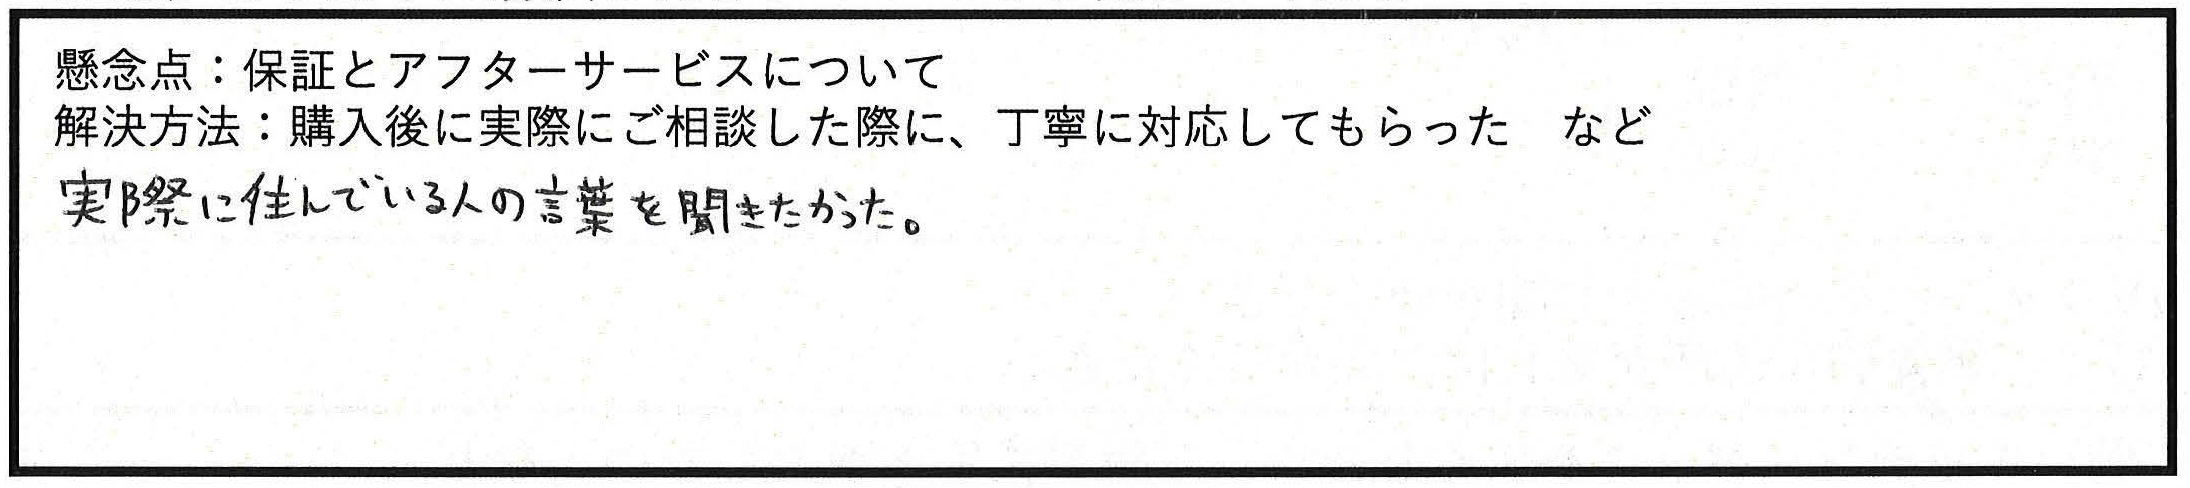 懸念点：保証とアフターサービスについて
解決方法：購入後に実際にご相談した際に、丁寧に対応してもらった　など
実際に住んでいる人の言葉を聞きたかった。